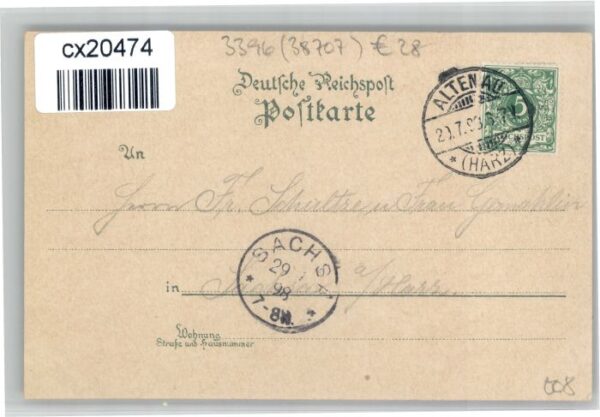 cx20474
3396 (38707) € 28
Deutsche Reichspost
Postkarte
ALTENAU
(HARZ)
5
REICHSPOST
An
Herrn Fr. Schultze u Frau Gemahlin
SACHSA
29
98
7-8N.
in a/Harz.
Wohnung
Straße und Hausnummer
008